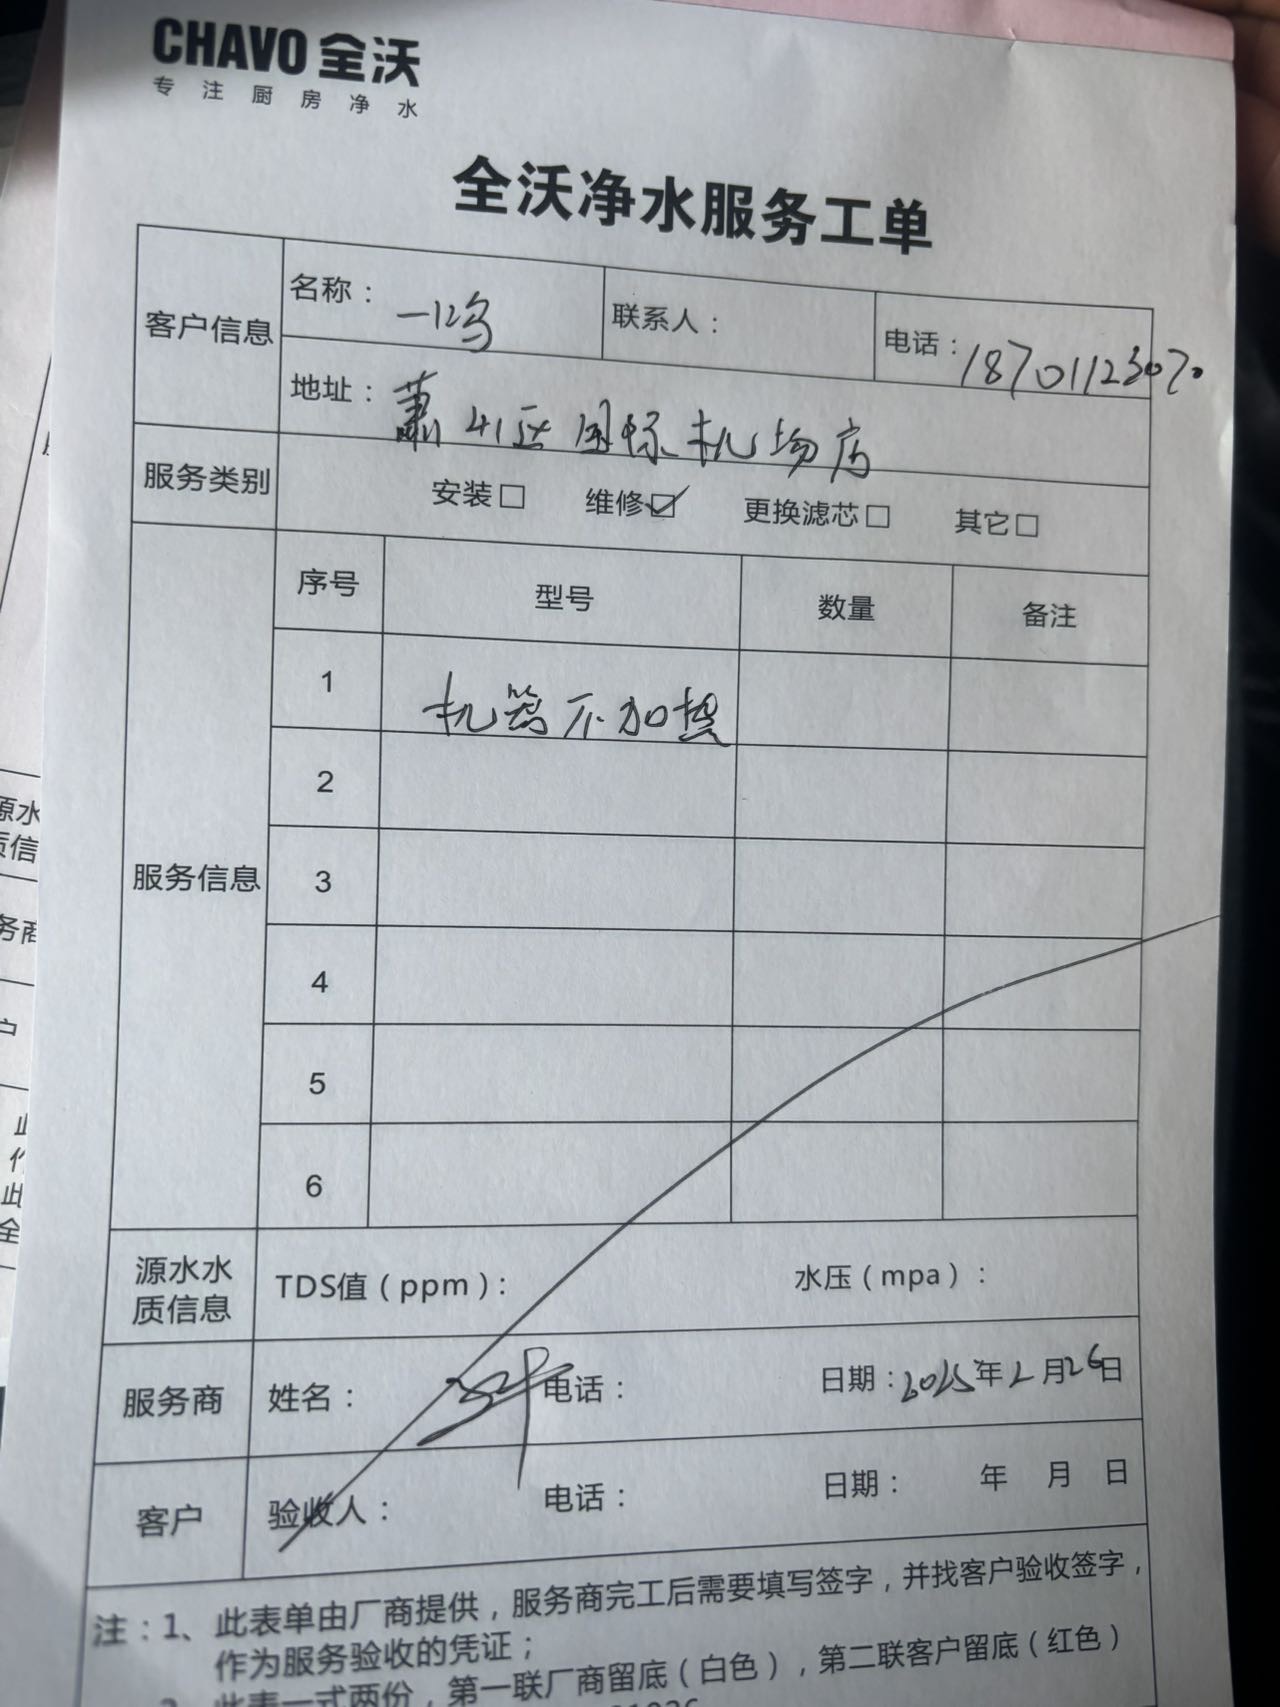 CHAVO 全沃
专注厨房净水
全沃净水服务工单
客户信息
名称：一鸣
联系人：
电话：18701123070
地址：萧山区国际机场店
服务类别
安装□ 维修☑ 更换滤芯□ 其它□
服务信息
序号 型号 数量 备注
1 机器不加热
2
3
4
5
6
源水水质信息
TDS值（ppm）： 水压（mpa）：
服务商 姓名： 电话： 日期：2025年2月26日
客户 验收人： 电话： 日期： 年 月 日
注：1、此表单由厂商提供，服务商完工后需要填写签字，并找客户验收签字，
作为服务验收的凭证；
2、此表一式两份，第一联厂商留底（白色），第二联客户留底（红色）
源水
质信
务商
户
此
作
此
全